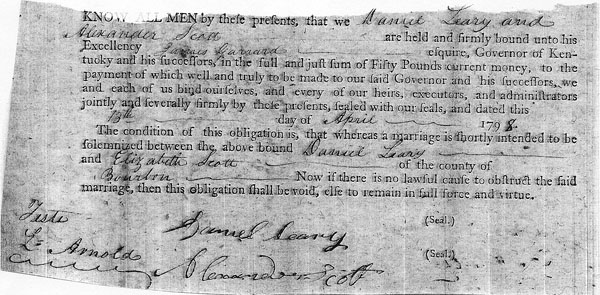 KNOW ALL MEN by these presents, that we Daniel Leary and
Alexander Scott are held and firmly bound unto his
Excellency James Garrard esquire, Governor of Ken-
tucky and his successors, in the full and just sum of Fifty Pounds current money, to the
payment of which well and truly to be made to our said Governor and his successors, we
and each of us bind ourselves, and every of our heirs, executors, and administrators
jointly and severally firmly by these presents, sealed with our seals, and dated this
day of April 1798.
The condition of this obligation is, that whereas a marriage is shortly intended to be
solemnized between the above bound Danniel Leary
and Elizabeth Scott of the county of
Bourbon Now if there is no lawful cause to obstruct the said
marriage, then this obligation shall be void, else to remain in full force and virtue.
Teste
Daniel Leary (Seal.)
L- Arnold
Alexander Scott (Seal.)